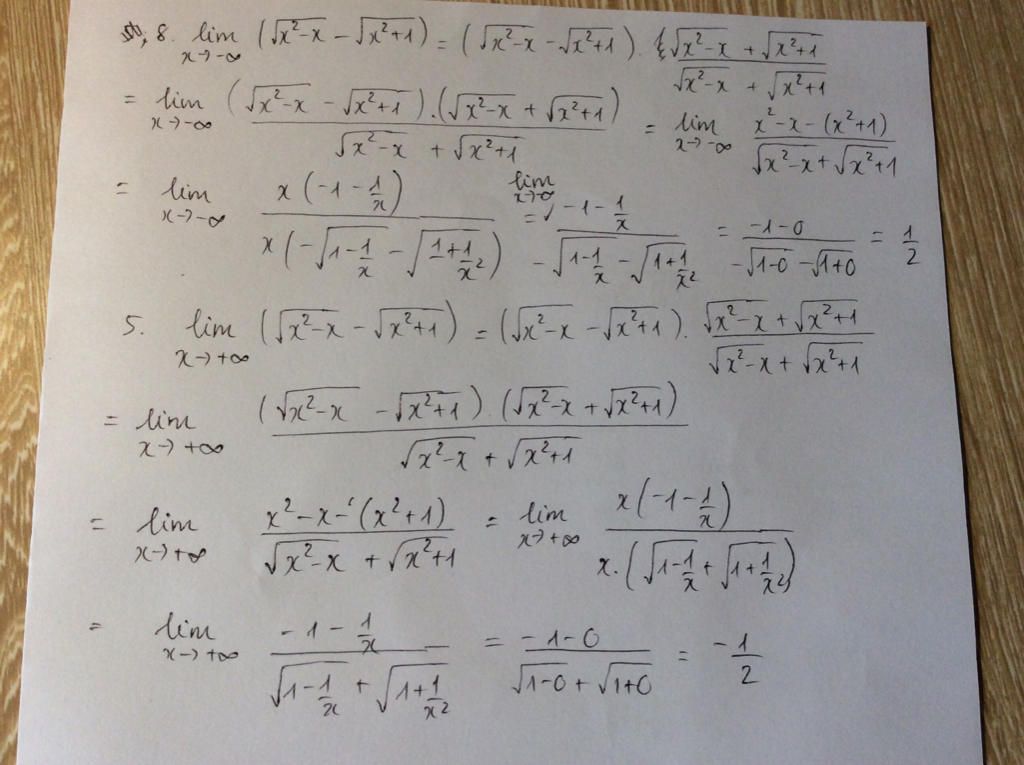 8. lim x→-∞ (√(x²-x) - √(x²+1)) = (√(x²-x) - √(x²+1)) . (√(x²-x) + √(x²+1))/(√(x²-x) + √(x²+1))
= lim x→-∞ ((√(x²-x) - √(x²+1)).(√(x²-x) + √(x²+1)))/(√(x²-x) + √(x²+1)) = lim x→-∞ (x²-x-(x²+1))/(√(x²-x)+√(x²+1))
= lim x→-∞ (x(-1-1/x))/(x(-√(1-1/x) - √(1+1/x²))) = lim x→-∞ (-1-1/x)/(-√(1-1/x) - √(1+1/x²)) = (-1-0)/(-√(1-0) - √(1+0)) = 1/2
5. lim x→+∞ (√(x²-x) - √(x²+1)) = (√(x²-x) - √(x²+1)) . (√(x²-x) + √(x²+1))/(√(x²-x) + √(x²+1))
= lim x→+∞ ((√(x²-x) - √(x²+1)).(√(x²-x) + √(x²+1)))/(√(x²-x) + √(x²+1))
= lim x→+∞ (x²-x-(x²+1))/(√(x²-x) + √(x²+1)) = lim x→+∞ (x(-1-1/x))/(x.(√(1-1/x) + √(1+1/x²)))
= lim x→+∞ (-1-1/x)/(√(1-1/x) + √(1+1/x²)) = (-1-0)/(√(1-0) + √(1+0)) = -1/2